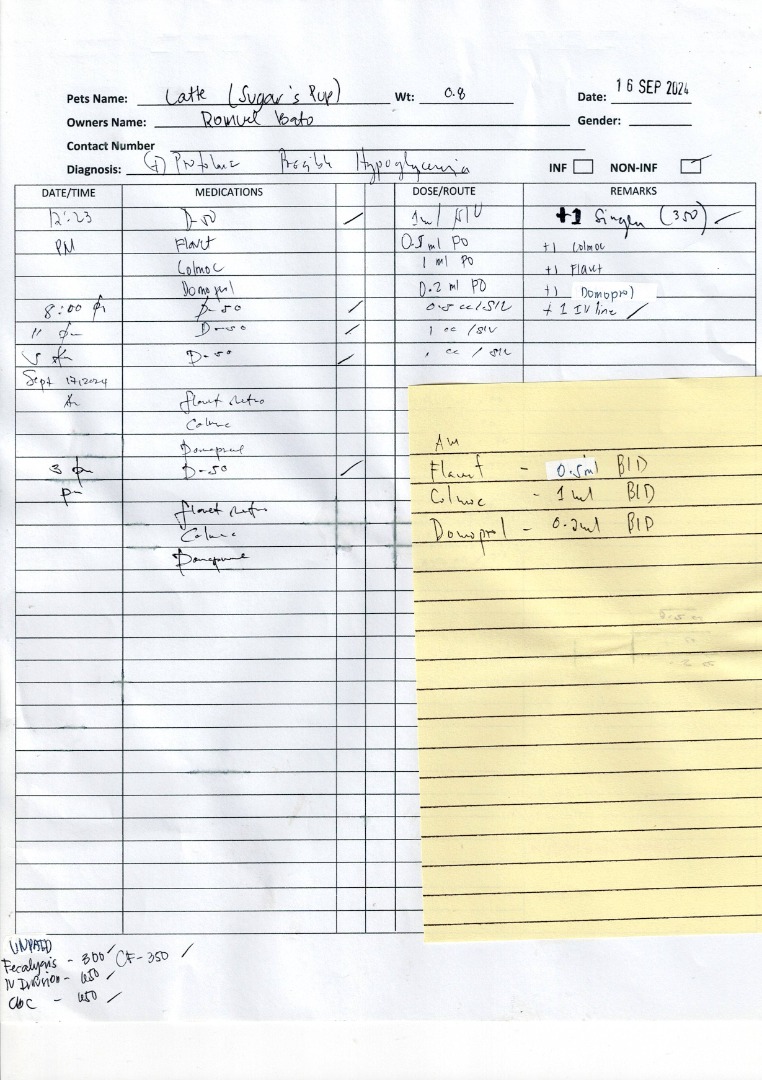 Pets Name: Latte (Sugar's Pup) Wt: 0.8 Date: 16 SEP 2024
Owners Name: Romuel Bato Gender:
Contact Number
Diagnosis: (+) Possible INF NON-INF
DATE/TIME MEDICATIONS DOSE/ROUTE REMARKS
12:23 D-50 1ml +1 (350)
PM Flavet 0.5 ml PO +1 Colmoc
Colmoc 1 ml PO +1 Flavet
Domoprol 0.2 ml PO +1 Domoprol
8:00 pm D-50 0.5 cc/SIV +1 IV line
11 pm D-50 1 cc /SIV
5 D-50 1 cc / SIV
Sept 17, 2024
Flavet
Colmoc
Domoprol
3 pm D-50
pm
Flavet
Colmoc
Domoprol
AM
Flavet - 0.5ml BID
Colmoc - 1 ml BID
Domoprol - 0.2ml BID
UNPAID
Fecalysis - 300 CF-350
IV - 650
CBC - 650